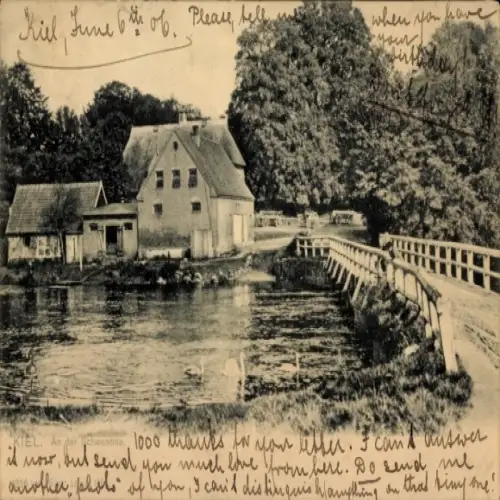 Kiel, June 6th 06. Please, tell me when you have
your
birthday
KIEL. An der
1000 thanks for your letter. I can't answer
it now, but send you much love from here. Do send me
another "photo" of you, I can't distinguish on that tiny one.